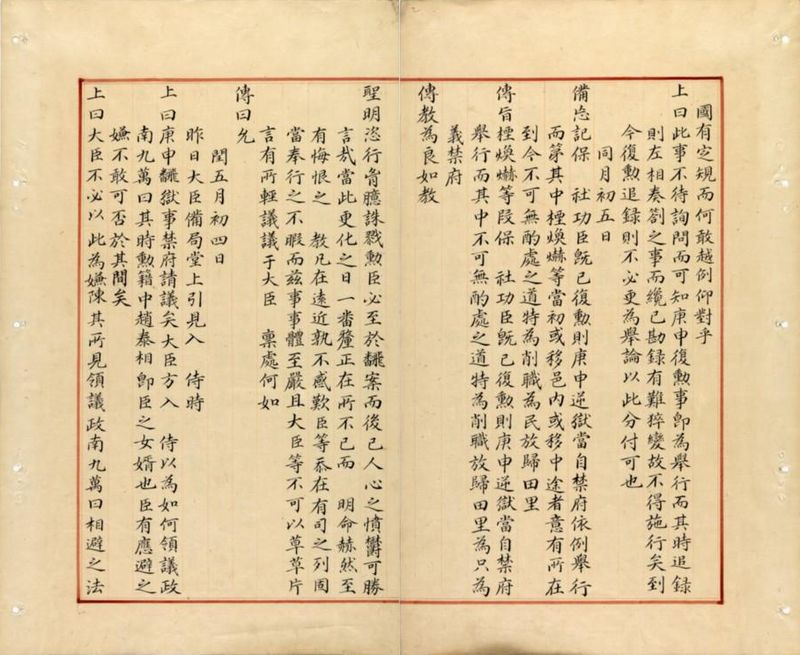 國有定規而何敢越例仰對乎
上曰此事不待詢問而可知庚申復勳事卽為舉行而其時追録
則左相奏箚之事而纔已勘録有難猝變故不得施行矣到
今復勳追録則不必更為舉論以此分付可也
同月初五日
備忘記保　社功臣旣已復勳則庚申逆獄當自禁府依例舉行
而第其中楨煥爀等當初或移邑內或移中途者意有所在
到今不可無酌處之道特為削職為民放歸田里
傳旨楨煥爀等段保　社功臣旣已復勳則庚申逆獄當自禁府
舉行而其中不可無酌處之道特為削職放歸田里為只為
義禁府
傳教為良如教
聖明恣行胷臆誅戮勳臣必至於飜案而後已人心之憤鬱可勝
言㢤當此更化之日一番釐正在所不已而　明命赫然至
有悔恨之　教凡在遠近孰不感歎臣等忝在有司之列固
當奉行之不暇而茲事事體至嚴且大臣等不可以草草片
言有所輕議議于大臣　稟處何如
傳曰允
閏五月初四日
昨日大臣備局堂上引見入　侍時
上曰庚申飜獄事禁府請議矣大臣方入　侍以為如何領議政
南九萬曰其時勳籍中趙泰相卽臣之女婿也臣有應避之
嫌不敢可否於其間矣
上曰大臣不必以此為嫌陳其所見領議政南九萬曰相避之法